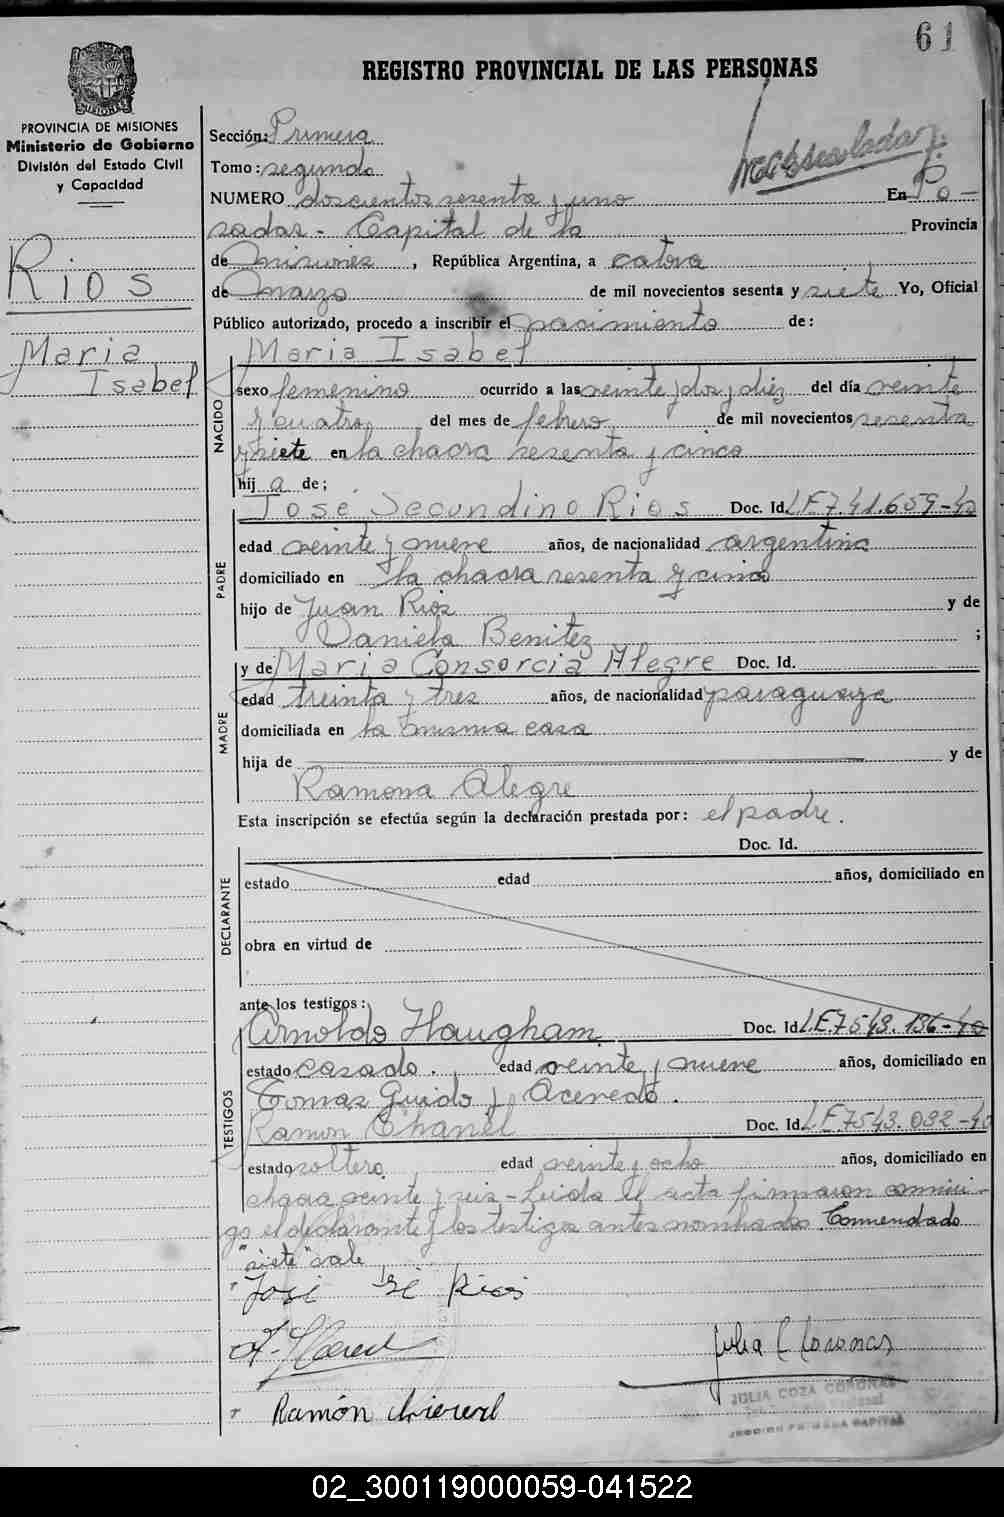 61
REGISTRO PROVINCIAL DE LAS PERSONAS
PROVINCIA DE MISIONES
Ministerio de Gobierno
División del Estado Civil
y Capacidad
Rios
Maria
Isabel
Sección: Primera
Tomo: segundo
NUMERO doscientos sesenta y uno En Po-
sadas - Capital de la Provincia
de Misiones, República Argentina, a catorce
de Marzo de mil novecientos sesenta y siete Yo, Oficial
Público autorizado, procedo a inscribir el nacimiento de:
Maria Isabel
NACIDO
sexo femenino ocurrido a las veinte y dos y diez del día veinte
y cuatro del mes de febrero de mil novecientos sesenta
y siete en la chacra sesenta y cinco
hij a de;
PADRE
José Secundino Rios Doc. Id. L.E.7.41.659-40
edad veinte y nueve años, de nacionalidad argentina
domiciliado en la chacra sesenta y cinco
hijo de Juan Rios y de
Daniela Benitez ;
MADRE
y de Maria Consorcia Alegre Doc. Id.
edad treinta y tres años, de nacionalidad paraguaya
domiciliada en la misma casa
hija de y de
Ramona Alegre
Esta inscripción se efectúa según la declaración prestada por: el padre.
Doc. Id.
DECLARANTE
estado edad años, domiciliado en
obra en virtud de
ante los testigos:
TESTIGOS
Arnoldo Haugham Doc. Id. L.E.7543.136-40
estado casado. edad veinte y nueve años, domiciliado en
Tomas Guido y Acevedo.
Ramon Chanel Doc. Id. L.E 7543.032-40
estado soltero edad veinte y ocho años, domiciliado en
chacra veinte y seis - Leida el acta firmaron conmi-
go el declarante y los testigos antes nombrados. Enmendado
"siete" vale
José Rios
Julia C Coronas
Ramón
JULIA COZA CORONAS
SECCION PRIMERA CAPITAL
02_300119000059-041522